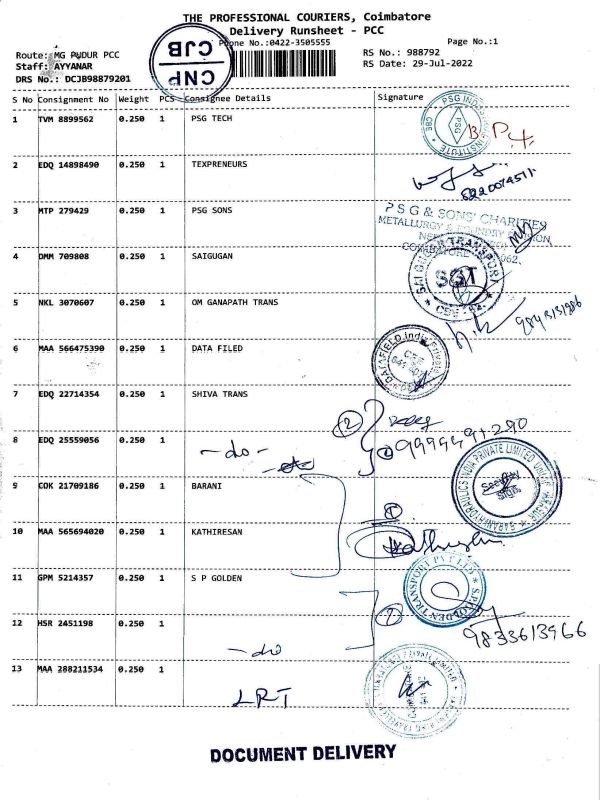 THE PROFESSIONAL COURIERS, Coimbatore
Delivery Runsheet - PCC
Phone No.:0422-3505555
Page No.:1
Route: MG PUDUR PCC
RS No.: 988792
Staff: AYYANAR
RS Date: 29-Jul-2022
DRS No.: DCJB98879201
CNP
CJB
S No Consignment No Weight PCS Consignee Details Signature
1 TVM 8899562 0.250 1 PSG TECH
2 EDQ 14898490 0.250 1 TEXPRENEURS
3 MTP 279429 0.250 1 PSG SONS
PSG & SONS' CHARITIES
METALLURGY & FOUNDRY DIVISION
4 DMM 709808 0.250 1 SAIGUGAN
SGT
5 NKL 3070607 0.250 1 OM GANAPATH TRANS
6 MAA 566475390 0.250 1 DATA FILED
7 EDQ 22714354 0.250 1 SHIVA TRANS
8 EDQ 25559056 0.250 1 -do-
9 COK 21709186 0.250 1 BARANI
Security
Sign
10 MAA 565694020 0.250 1 KATHIRESAN
Kathiresan
11 GPM 5214357 0.250 1 S P GOLDEN
S.P.GOLDEN TRANSPORT PVT LTD
12 HSR 2451198 0.250 1 -do
9833613966
13 MAA 288211534 0.250 1 LRT
DOCUMENT DELIVERY